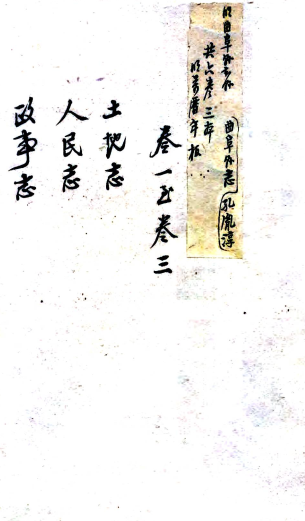 明曲阜县志
曲阜县志 孔胤淳
共六卷三本
明万历年板
卷一至卷三
土地志
人民志
政事志